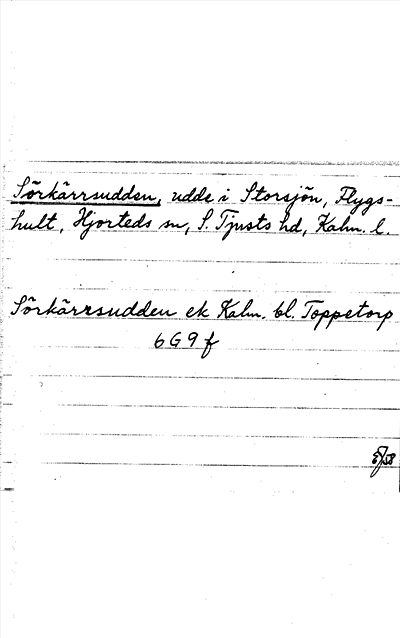 Sörkärrsudden, udde i Storsjön, Flygs-
hult, Hjorteds sn, S. Tjusts hd, Kalm. l.
Sörkärrsudden ek Kalm. bl. Toppetorp
6G9f